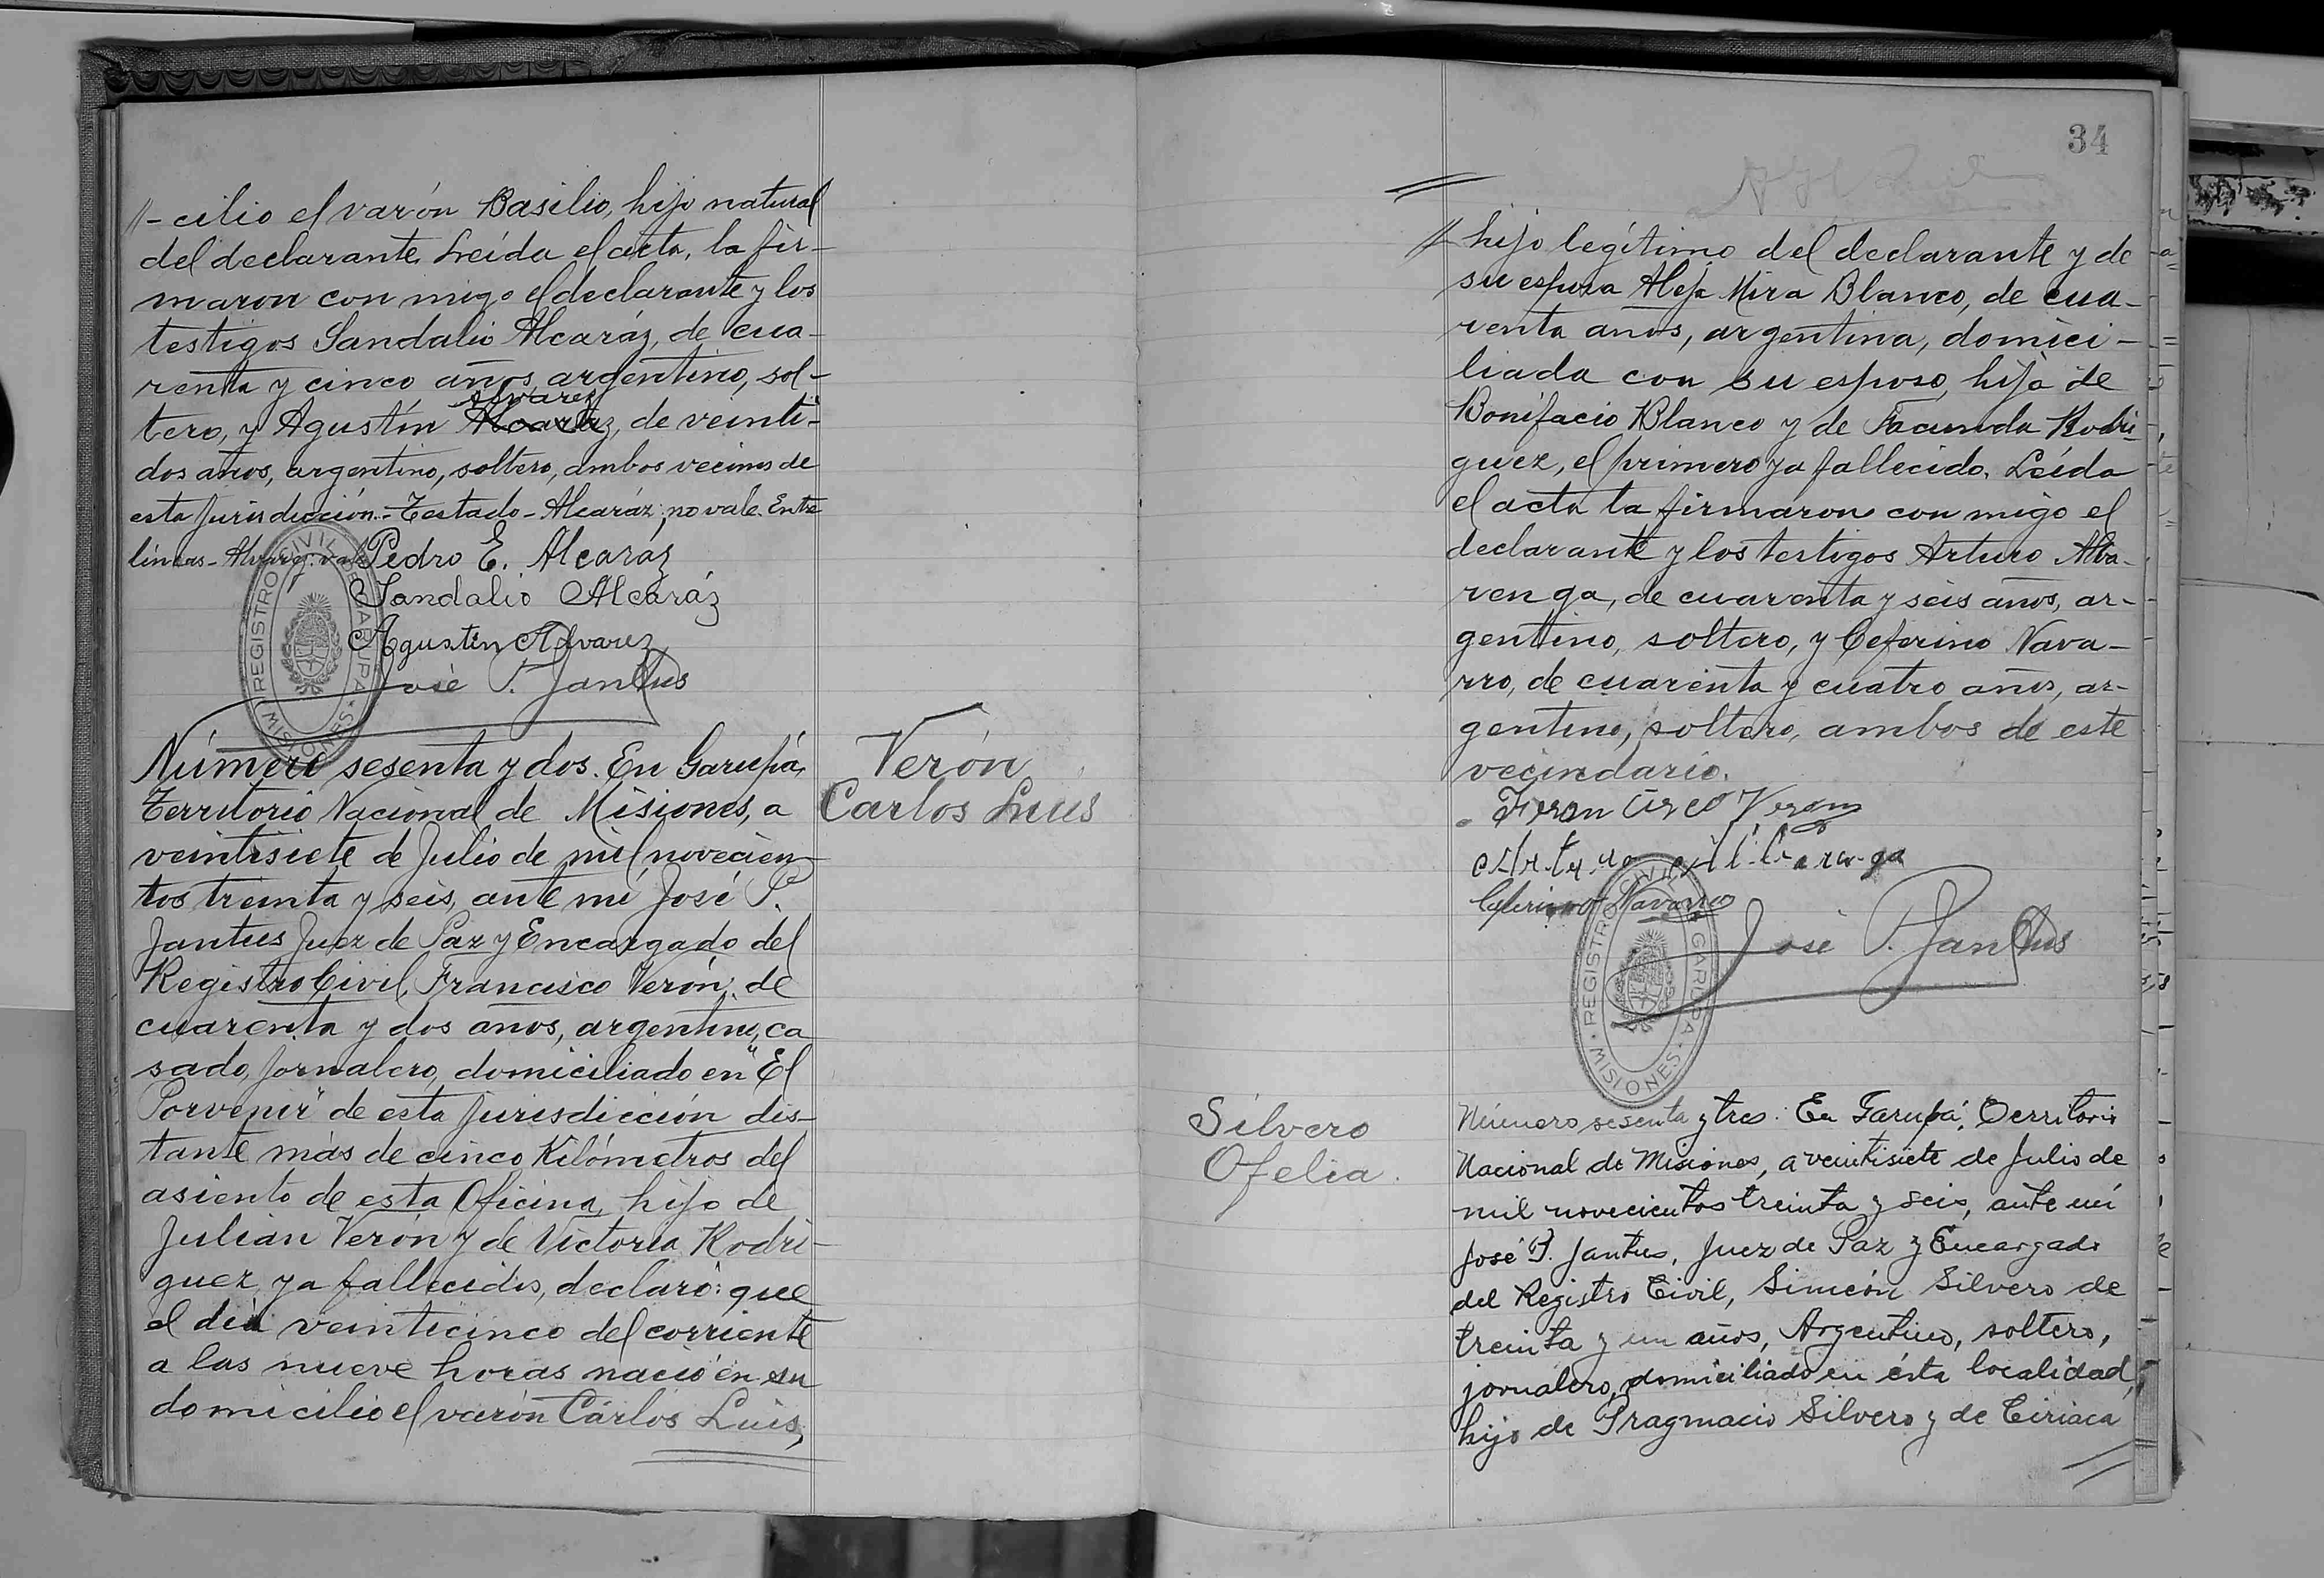 //-cilio el varón Basilio, hijo natural
del declarante. Leída el acta, la fir-
maron con migo el declarante y los
testigos Sandalio Alcaráz, de cua-
renta y cinco años, argentino, sol-
Alvarez
tero, y Agustín Alcaráz, de veinti-
dos años, argentino, soltero, ambos vecinos de
esta Jurisdicción.- Testado - Alcaráz: no vale. Entre
líneas - Alvarez: vale
Pedro E. Alcaráz
Sandalio Alcaráz
Agustín Alvarez
José P. Jantus
REGISTRO CIVIL GARUPA MISIONES
Número sesenta y dos. En Garupá,
Territorio Nacional de Misiones, a
veintisiete de Julio de mil novecien-
tos treinta y seis, ante mí José P.
Jantus Juez de Paz y Encargado del
Registro Civil, Francisco Verón, de
cuarenta y dos años, argentino, ca
sado, jornalero, domiciliado en "El
Porvenir" de esta Jurisdicción dis-
tante más de cinco Kilómetros del
asiento de esta Oficina, hijo de
Julián Verón y de Victoria Rodri-
guez, ya fallecidos, declaró: que
el día veinticinco del corriente
a las nueve horas nació en su
domicilio el varón Cárlos Luis,
Verón
Carlos Luis
34
// hijo legítimo del declarante y de
su esposa Aleja Mira Blanco, de cua-
renta años, argentina, domici-
liada con su esposo, hija de
Bonifacio Blanco y de Facunda Rodri-
guez, el primero ya fallecido. Leída
el acta la firmaron con migo el
declarante y los testigos Arturo Alva-
renga, de cuarenta y seis años, ar-
gentino, soltero, y Ceferino Nava-
rro, de cuarenta y cuatro años, ar-
gentino, soltero, ambos de este
vecindario.
Francirco Veron
Arturo Albarenga
Ceferino Navarro
José P. Jantus
REGISTRO CIVIL GARUPA MISIONES
Silvero
Ofelia.
Número sesenta y tres. En Garupá, Territorio
Nacional de Misiones, a veintisiete de Julio de
mil novecientos treinta y seis, ante mí
José P. Jantus, Juez de Paz y Encargado
del Registro Civil, Simeón Silvero de
treinta y un años, Argentino, soltero,
jornalero, domiciliado en ésta localidad,
hijo de Pragmacio Silvero y de Ciriaca